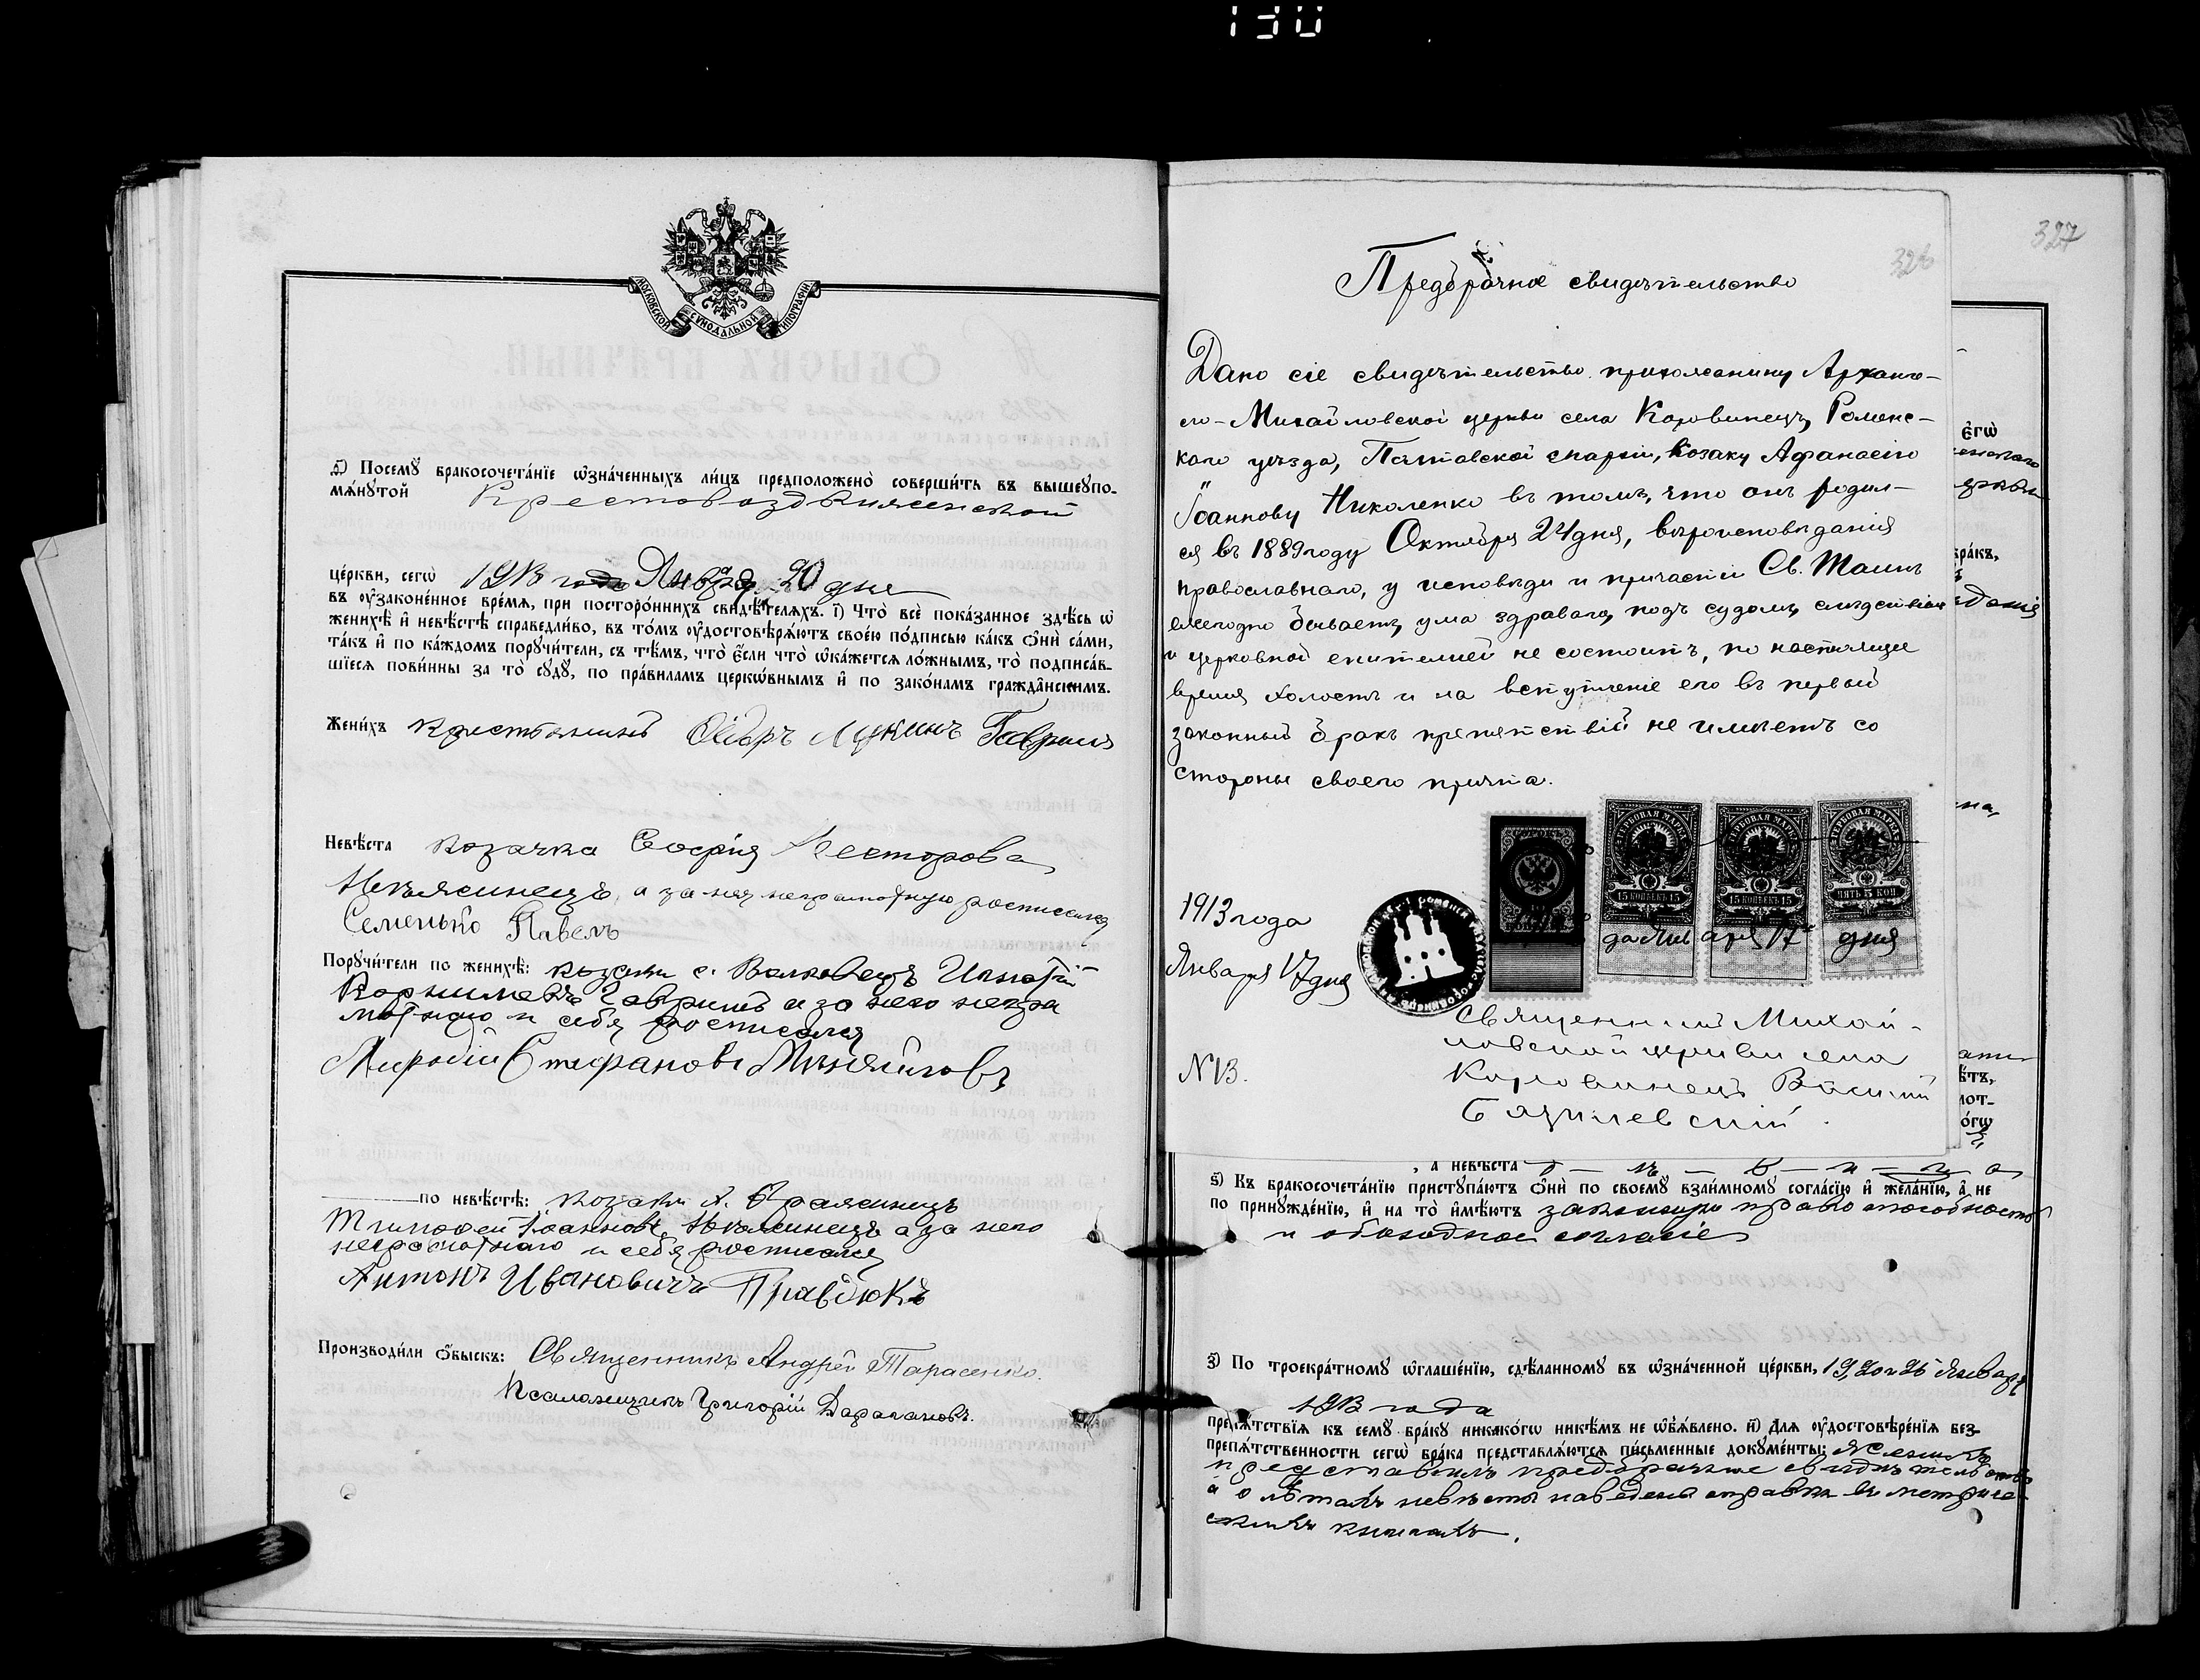 130
МОСКОВСКОЙ СѴНОДАЛЬНОЙ ТИПОГРАФІИ
Посемꙋ̀ бракосочета́нїе ѡ҆зна́ченныхъ ли́цъ предположено̀ соверши́ть въ вышеꙋпо-
мѧ́нꙋтой Крестовоздвиженской
це́ркви, сегѡ̀ 1913 года Января 20 дня
въ ᲂу҆зако́ненное вре́мѧ, при посторо́ннихъ свидѣ́телѧхъ. і҃) Что̀ всѐ пока́занное здѣ́сь ѡ҆
женихѣ̀ и҆ невѣ́стѣ справедли́во, въ то́мъ ᲂу҆достовѣрѧ́ютъ своє́ю по́дписью ка́къ ѻ҆нѝ са́ми,
та́къ и҆ по ка́ждомъ порꙋчи́тели, съ тѣ́мъ, что̀ є҆́сли что̀ ѡ҆ка́жетсѧ ло́жнымъ, то̀ подписа́в-
шїесѧ пови́нны за то̀ сꙋдꙋ̀, по пра́виламъ церкѡ́внымъ и҆ по зако́намъ гражда̂нскимъ.
Жени́хъ крестьянинъ Сидоръ Лукинъ Гавришъ
Невѣ́ста козачка Софія Несторова
Нѣжинецъ, а за нея неграмотную росписался
Семенько Павелъ
Порꙋчи́тели по женихѣ̀: козаки с. Волковецъ Игнатій
Гавришъ а за него негра
мотнаго и себя росписался
Стефановъ
по невѣ́стѣ: козаки х.
Тимофей Іоанновъ Нѣжинецъ а за него
неграмотнаго и себя росписался
Антонъ Ивановичъ Правдюкъ
Производи́ли ѻ҆́быскъ: Священникъ Андрей Тарасенко.
Псаломщикъ Григорій Дарагановъ.
327
326
Предбрачное свидѣтельство
Дано сіе свидѣтельство прихожанину Арханге-
ло-Михайловской церкви села Коровинецъ, Роменс-
каго уѣзда, Полтавской епархіи, козаку Афанасію
Іоаннову Николенко въ томъ, что онъ родил-
ся въ 1889 году Октября 24 дня, вѣроисповѣданія
православнаго, у исповѣди и причастія Св. Таинъ
ежегодно бываетъ, ума здраваго, подъ судомъ, слѣдствіемъ
и церковной епитиміей не состоитъ, по настоящее
время холостъ и на вступленіе его въ первый
законный бракъ препятствій не имѣетъ со
стороны своего причта.
1913 года
Января 17 дня
№ 13.
ГЕРБОВАЯ МАРКА ГЕРБОВАЯ МАРКА ГЕРБОВАЯ МАРКА
15 КОПѢЕКЪ 15 15 КОПѢЕКЪ 15 ПЯТЬ 5 КОП
года Января 17 дня
Священникъ Михай-
ловской церкви села
Коровинецъ Василій
Базилевскій.
Є҆гѡ̀
бра́къ,
ѣтъ,
лот-
о́гѡ
, а҆ невѣ́ста д — ѣ — в — и — ц — а
ѕ҃) Къ бракосочета́нїю пристꙋпа́ютъ ѻ҆нѝ по своемꙋ̀ взаи́мномꙋ согла́сїю и҆ жела́нїю, а҆ не
по принꙋжде́нїю, и҆ на то̀ и҆мѣ́ютъ
и обоюдное согласіе
з҃) По троекра́тномꙋ ѡ҆глаше́нїю, сдѣ́ланномꙋ въ ѡ҆зна́ченной це́ркви, 19, 20 и 26 Января
1913 года
препѧ́тствїѧ къ семꙋ̀ бра́кꙋ никако́гѡ никѣ́мъ не ѡ҆б̾ѧ́влено. и҃) Длѧ ᲂу҆достовѣре́нїѧ без-
препѧ́тственности сегѡ̀ бра́ка представлѧ́ютсѧ пи́сьменные докꙋме́нты: Женихъ
представилъ предбрачное свидѣтельство
а о лѣтахъ невѣсты наведена справка въ метриче-
скихъ книгахъ.